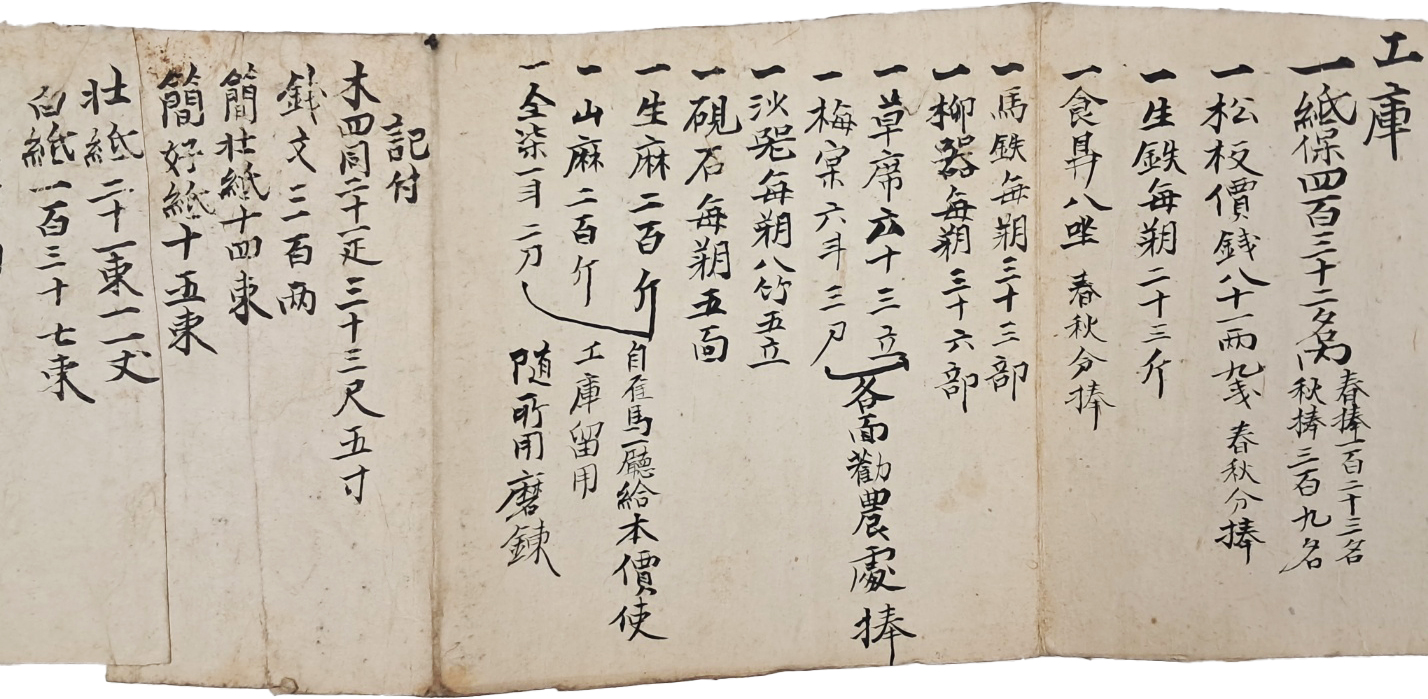 工庫
一紙保四百三十二名內 春捧一百二十三名
秋捧三百九名
一松板價錢八十一兩九戔 春秋分捧
一生鉄每朔二十三斤
一食鼎八坐 春秋分捧
一馬鉄每朔三十三部
一柳器每朔三十六部
一草席六十三立
一梅 六斗三刀 各面勸農處捧
一沙器每朔八竹五立
一硯石每朔五面
一生麻二百斤 自雇馬廳給本價使
一山麻二百斤 工庫留用
一全柒一 二刀 隨所用磨鍊
記付
木四同二十一疋三十三尺五寸
錢文三百兩
簡壯紙十四束
簡好紙十五束
壯紙二十一束一一丈
白紙一百三十七束